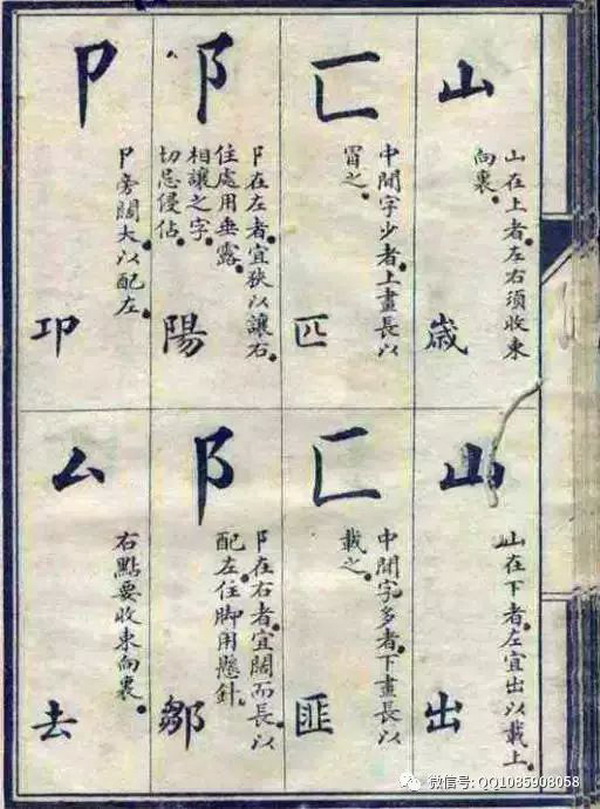 山
山在上者。左右須收束
向裏。
嵗
匚
中間字少者。上畫長以
冒之。
匹
阝
阝在左者。宜狹以讓右。
住處用垂露。
相讓之字
切忌侵佔。
陽
卩
卩旁闊大。以配左。
卭
山
山在下者。左宜出以載上。
出
匚
中間字多者。下畫長以
載之。
匪
阝
阝在右者。宜闊而長。以
配左。住脚用懸針。
鄒
厶
右點要收束向裏。
去
微信号: QQ1085908058